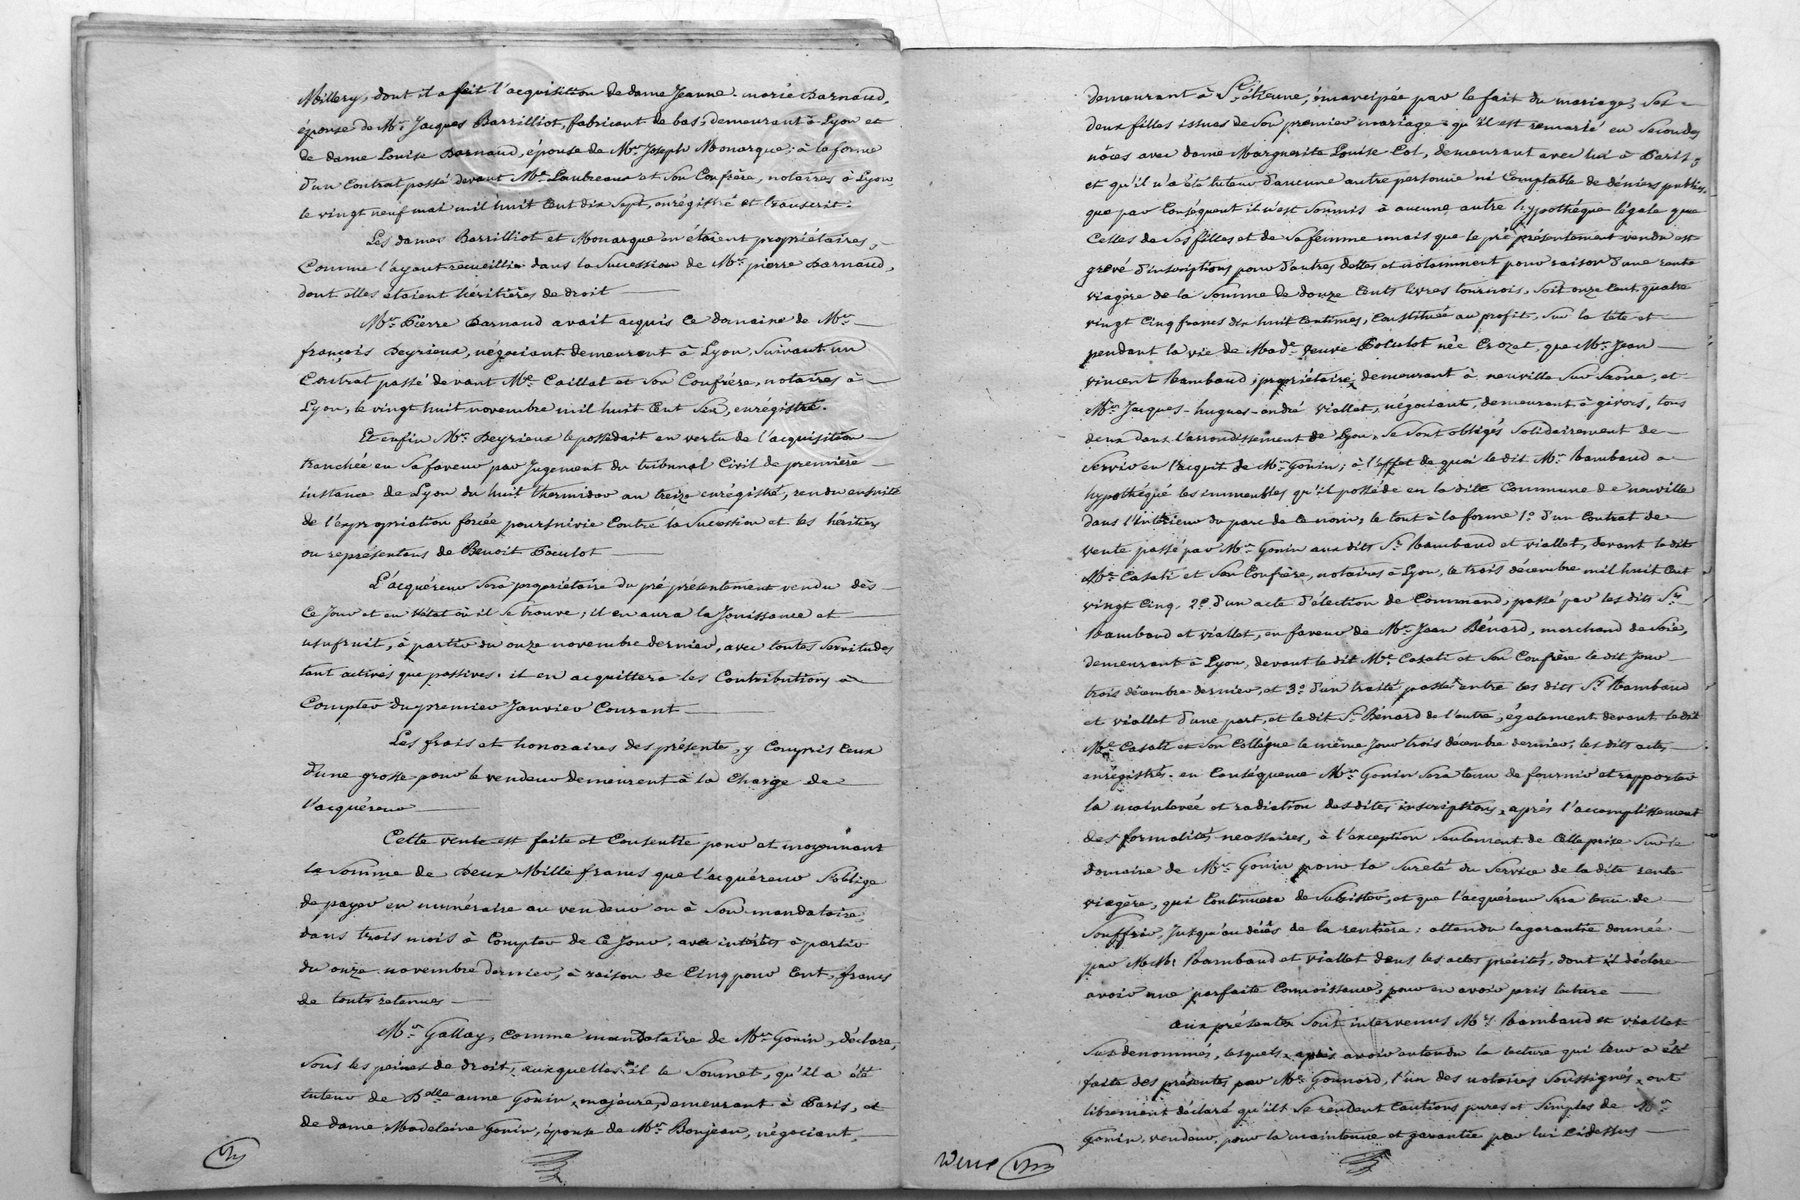 Millery, dont il a fait l'acquisition de dame Jeanne-marie Barnaud,
épouse de Mr. Jacques Barrilliot, fabricant de bas, demeurant à Lyon et
de dame Louise Barnaud, épouse de Mr. Joseph Monarque; à la forme
d'un Contrat passé devant Me. et Son Confrère, notaires à Lyon,
le vingt neuf mai mil huit Cent dix Sept, enrégistré et transcrit.
Les dames Barrilliot et Monarque en étoient propriétaires,
Comme l'ayant recueillie dans la Succession de Mr. pierre Barnaud,
dont elles étoient héritières de droit
Mr. Pierre Barnaud avait acquis Ce domaine de Mr.
françois Deyrieux, négociant demeurant à Lyon, Suivant un
Contrat passé devant Me. Caillat et Son Confrère, notaires à
Lyon, le vingt huit novembre mil huit Cent Six, enrégistré.
Et enfin Mr. Deyrieux le possedait en vertu de l'acquisition
tranchée en Sa faveur par Jugement du tribunal Civil de première
instance de Lyon du huit thermidor an treize enrégistré, rendu ensuite
de l'expropriation forcée poursuivie Contre la Succession et les héritiers
ou représentans de Benoit Poculot
L'acquéreur Sera propriétaire du pré présentement vendu dès
Ce Jour et en l'état où il Se trouve; il en aura la Jouissance et
usufruit, à partir du onze novembre dernier, avec toutes Servitudes
tant actives que passives. il en acquittera les Contributions à
Compter du premier Janvier Courant
Les frais et honoraires des présentes, y Compris Ceux
d'une grosse pour le vendeur demeurent à la Charge de
l'acquéreur
Cette vente est faite et Consentie pour et moyennant
la Somme de Deux Mille francs que l'acquéreur S'oblige
de payer en numéraire au vendeur ou à Son mandataire,
dans trois mois à Compter de Ce Jour, avec intérêts à partir
du onze novembre dernier, à raison de Cinq pour Cent, francs
de toutes retenues
Mr. Gallay, Comme mandataire de Mr. Gonin, déclare,
Sous les peines de droit, auxquelles il le Soumet, qu'il a été
tuteur de Dlle anne Gonin, majeure, demeurant à Paris, et
de dame Madeleine Gonin, épouse de Mr. Bonjean, négociant,
demeurant à St. étienne, émancipée par le fait du mariage, Ses
deux filles issues de Son premier mariage qu'il est remarié en Secondes
nôces avec dame Marguerite Louise Col, demeurant avec lui à Paris,
et qu'il n'a été tuteur d'aucune autre personne ni Comptable de deniers publics
que par Conséquent il n'est Soumis à aucune autre hypothéque légale que
Celles de Ses filles et de Sa femme mais que le pré présentement vendu est
grevé d'inscriptions pour d'autres dettes et notamment pour raison d'une rente
viagère de la Somme de douze Cents livres tournois, Soit onze Cent quatre
vingt Cinq francs dix huit Centimes, Constituée au profit, Sur la tête et
pendant la vie de Made. veuve Poculot née Crozet, que Mr. Jean
vincent Rambaud, propriétaire, demeurant à neuville Sur Saone, et
Mr. Jacques-hugues-andré Viallet, négociant, demeurant à givors, tous
deux dans l'arrondissement de Lyon, Se Sont obligés Solidairement de
Servir en l'acquit de Mr. Gonin; à l'effet de quoi le dit Mr. Rambaud a
hypothéqué les immeubles qu'il possède en la dite Commune de neuville
dans l'intérieur du parc de Ce nom, le tout à la forme 1o. d'un Contrat de
vente passé par Mr. Gonin aux dits Srs. Rambaud et viallet, devant le dit
Me. Casati et Son Confrère, notaires à Lyon, le trois décembre mil huit Cent
vingt Cinq, 2o. d'un acte d'élection de Command, passé par les dits Srs.
Rambaud et viallet, en faveur de Mr. Jean Bénard, marchand de Soie,
demeurant à Lyon, devant le dit Me. Casati et Son Confrère le dit Jour
trois décembre dernier, et 3o. d'un traité passé entre les dits Srs. Rambaud
et viallet d'une part, et le dit Sr. Bénard de l'autre, également devant le dit
Me. Casati et Son Collégue le même Jour trois décembre dernier, les dits actes
enrégistrés. en Conséquence Mr. Gonin Sera tenu de fournir et rapporter
la mainlevée et radiation des dites inscriptions, après l'accomplissement
des formalités necessaires, à l'exception Seulement de Celle prise Sur le
domaine de Mr. Gonin pour la Sureté du Service de la dite rente
viagère, qui Continuera de Subsister, et que l'acquéreur Sera tenu de
Souffrir, Jusqu'au décès de la rentière: attendu la garantie donnée
par MM. Rambaud et viallet dans les actes précités, dont il déclare
avoir une parfaite Connoissance, pour en avoir pris lecture
aux présentes Sont intervenus Mrs. Rambaud et viallet
Susdenommés, lesquels, après avoir entendu la lecture qui leur a été
faite des présentes par Me. Gonnord, l'un des notaires Soussignés, ont
librement déclaré qu'ils Se rendent Cautions pures et Simples de Mr.
Gonin, vendeur, pour la maintenue et garantie par lui Cidessus